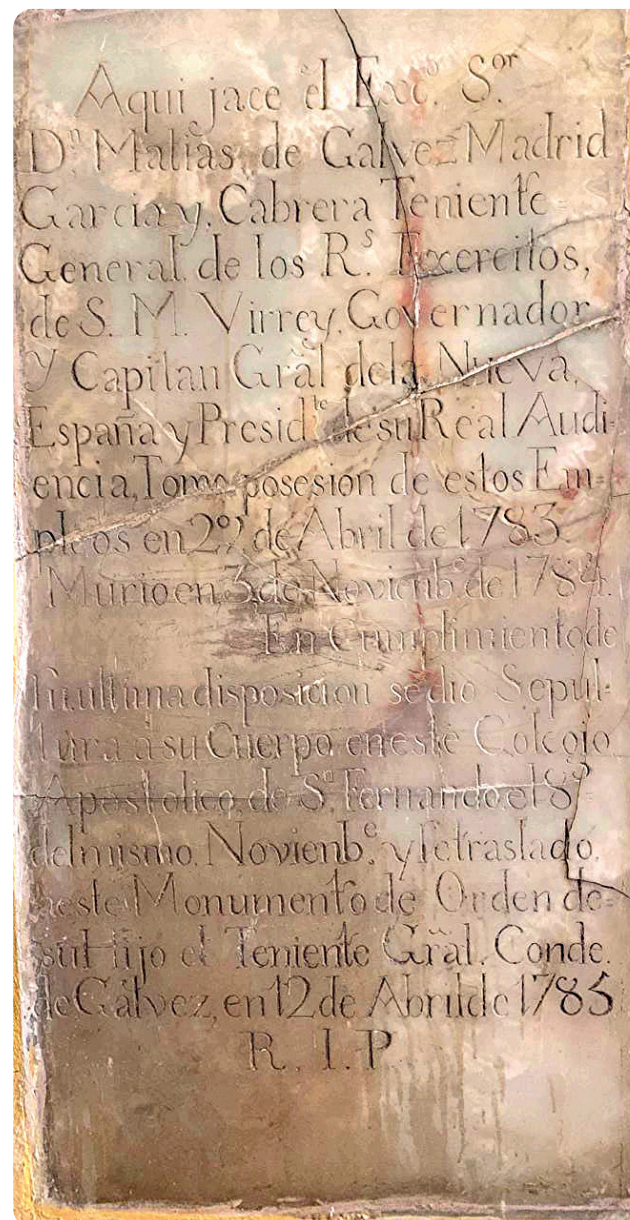 Aqui jace el Exc.º S.or
D.n Matias, de Galvez Madrid
Garcia y. Cabrera Teniente
General. de los R.s Exercitos,
de S. M. Virrey. Governador
y Capitan Grãl dela Nueva,
España y Presid.te de su Real Audi-
encia, Tomo posesion de estos Em-
pleos en 29 de Abril de 1783.
Murio en 3 de Novienb.e de 1784.
En Cumplimiento de
su ultima disposicion se dio Sepul-
tura a su Cuerpo en este Colegio
Apostolico, de S.n Fernando, el 8º
del mismo. Novienb.e y se traslado.
a este Monumento de Orden de=
su Hijo el Teniente Grãl. Conde.
de Gálvez, en 12 de Abril de 1785
R. I. P.